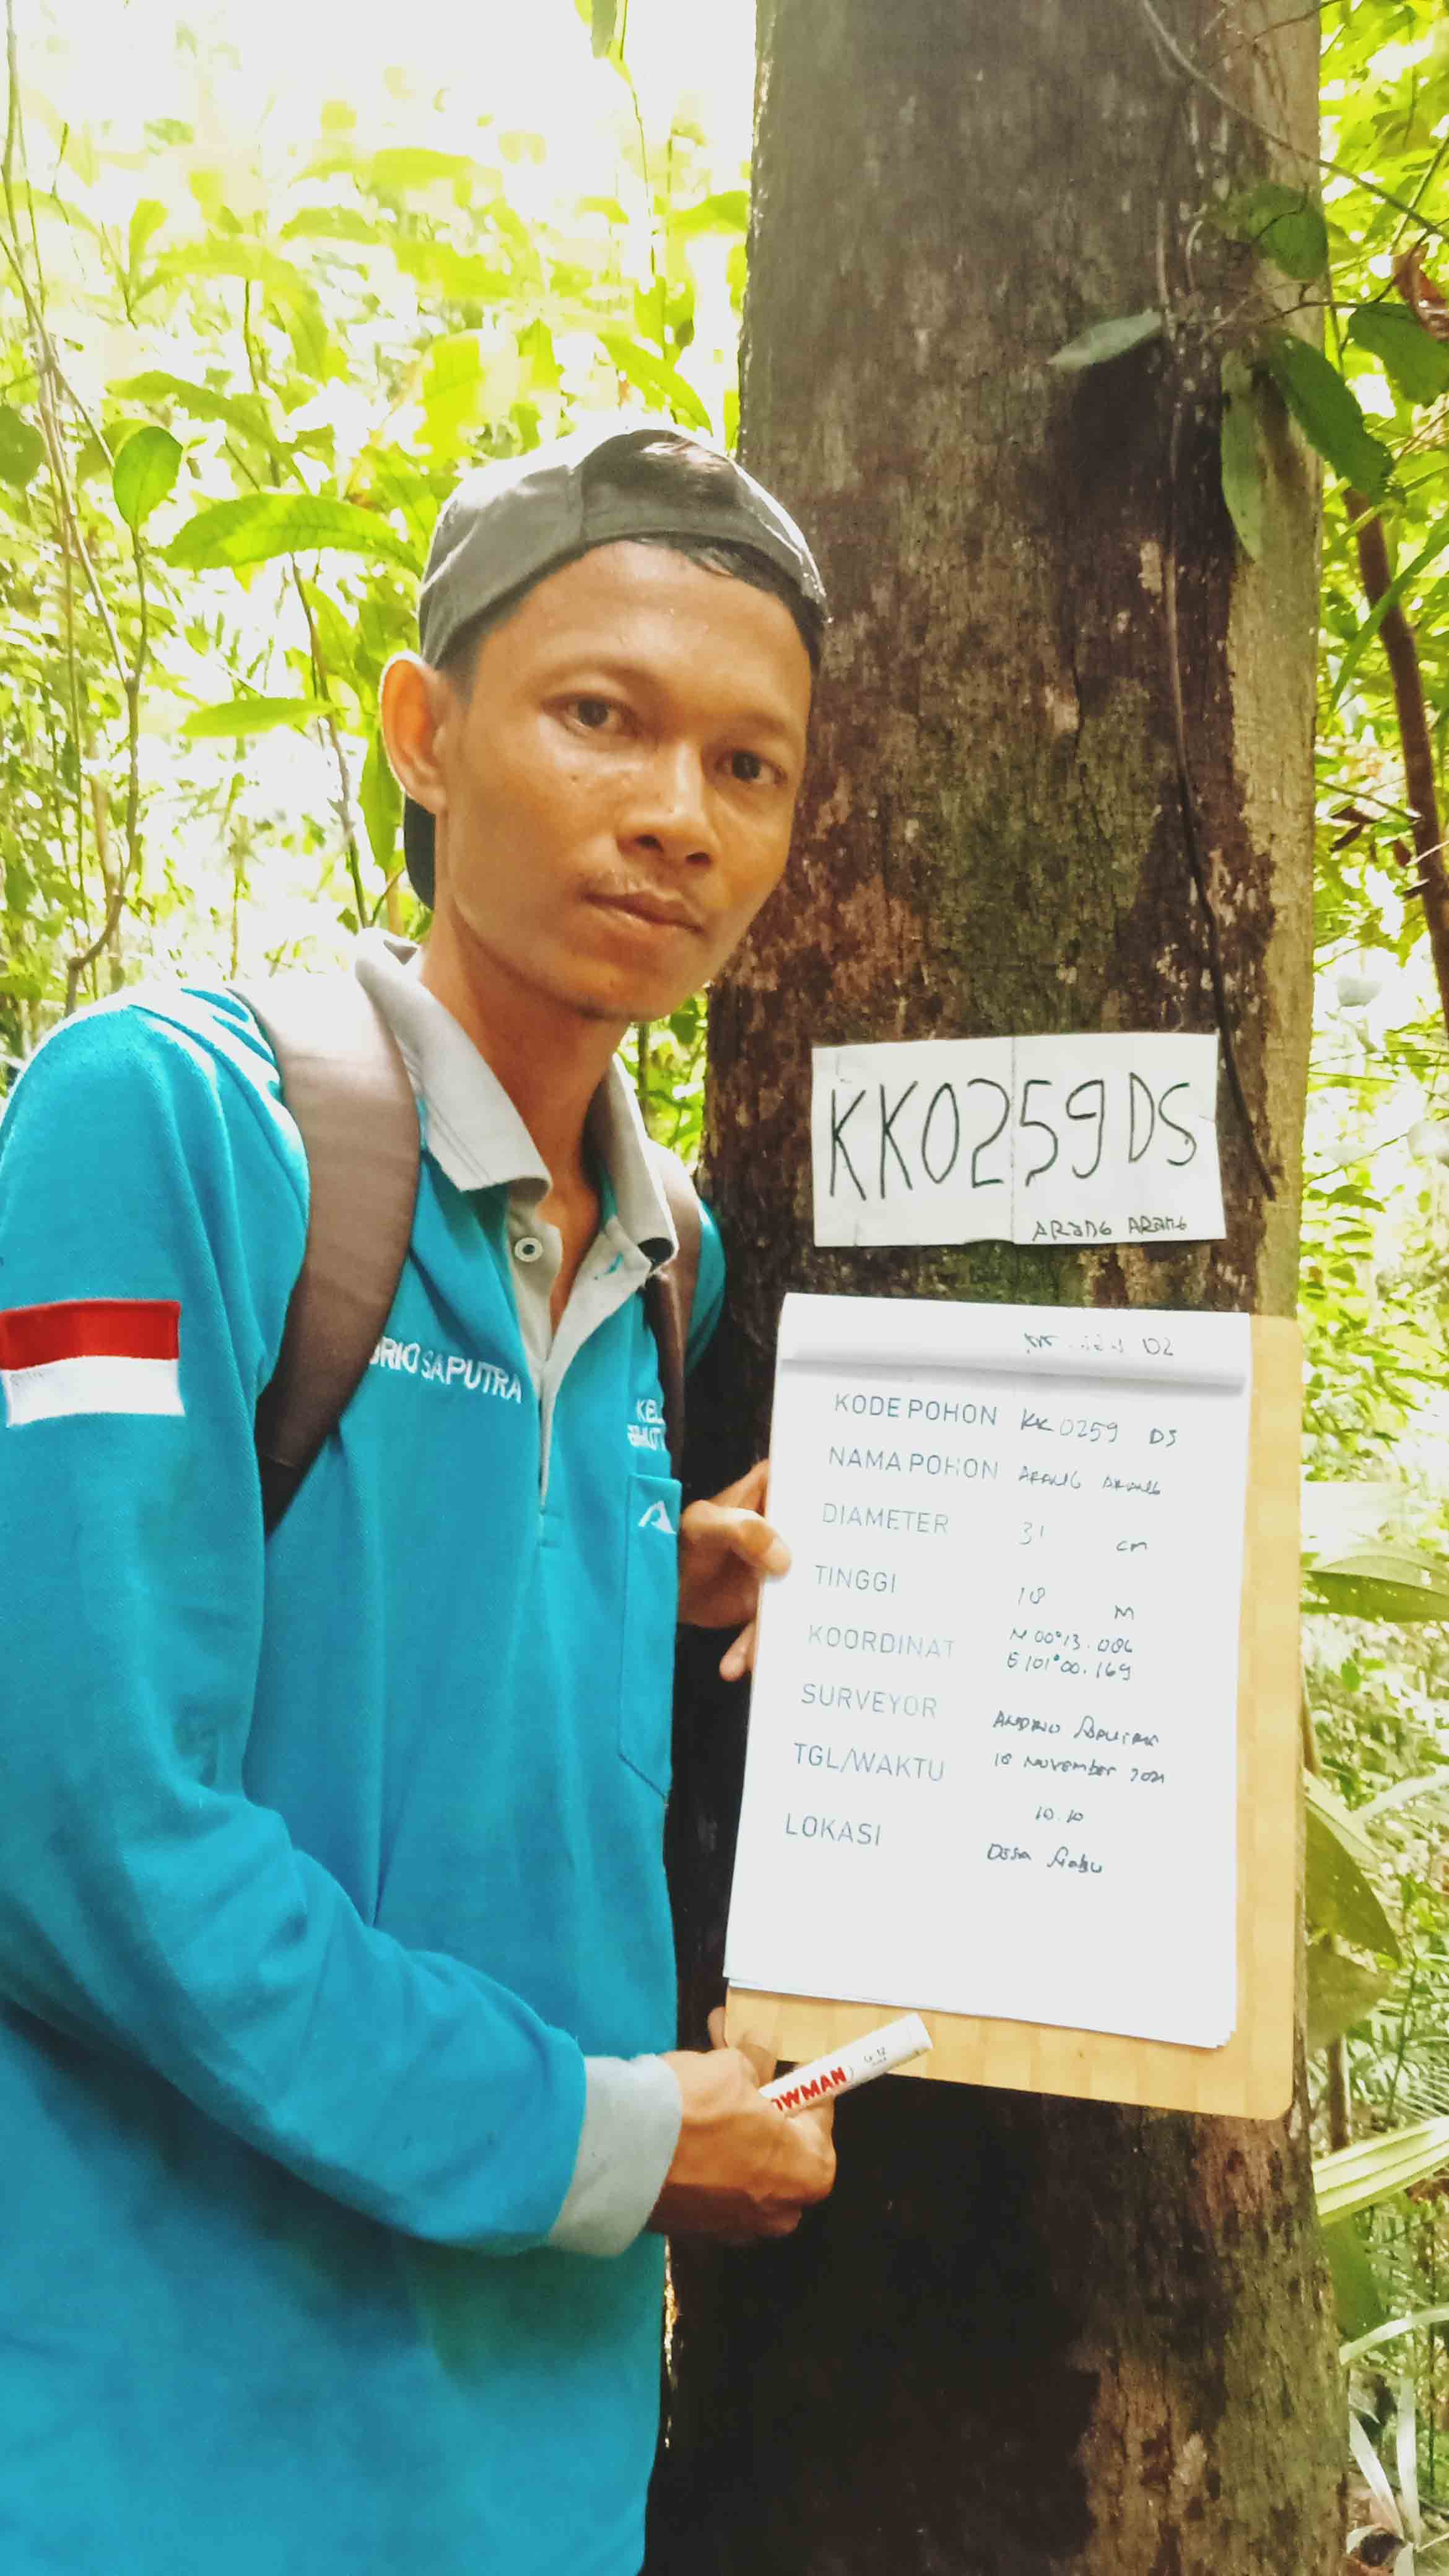 KK0259 DS
ARANG ARANG
SAPUTRA
KODE POHON KK 0259 DS
NAMA POHON ARANG ARANG
DIAMETER 31 cm
TINGGI 18 M
KOORDINAT N 00°13.086
E 101°00.169
SURVEYOR ANDRIO SAPUTRA
TGL/WAKTU 18 November 2021
10.10
LOKASI Desa
OWMAN